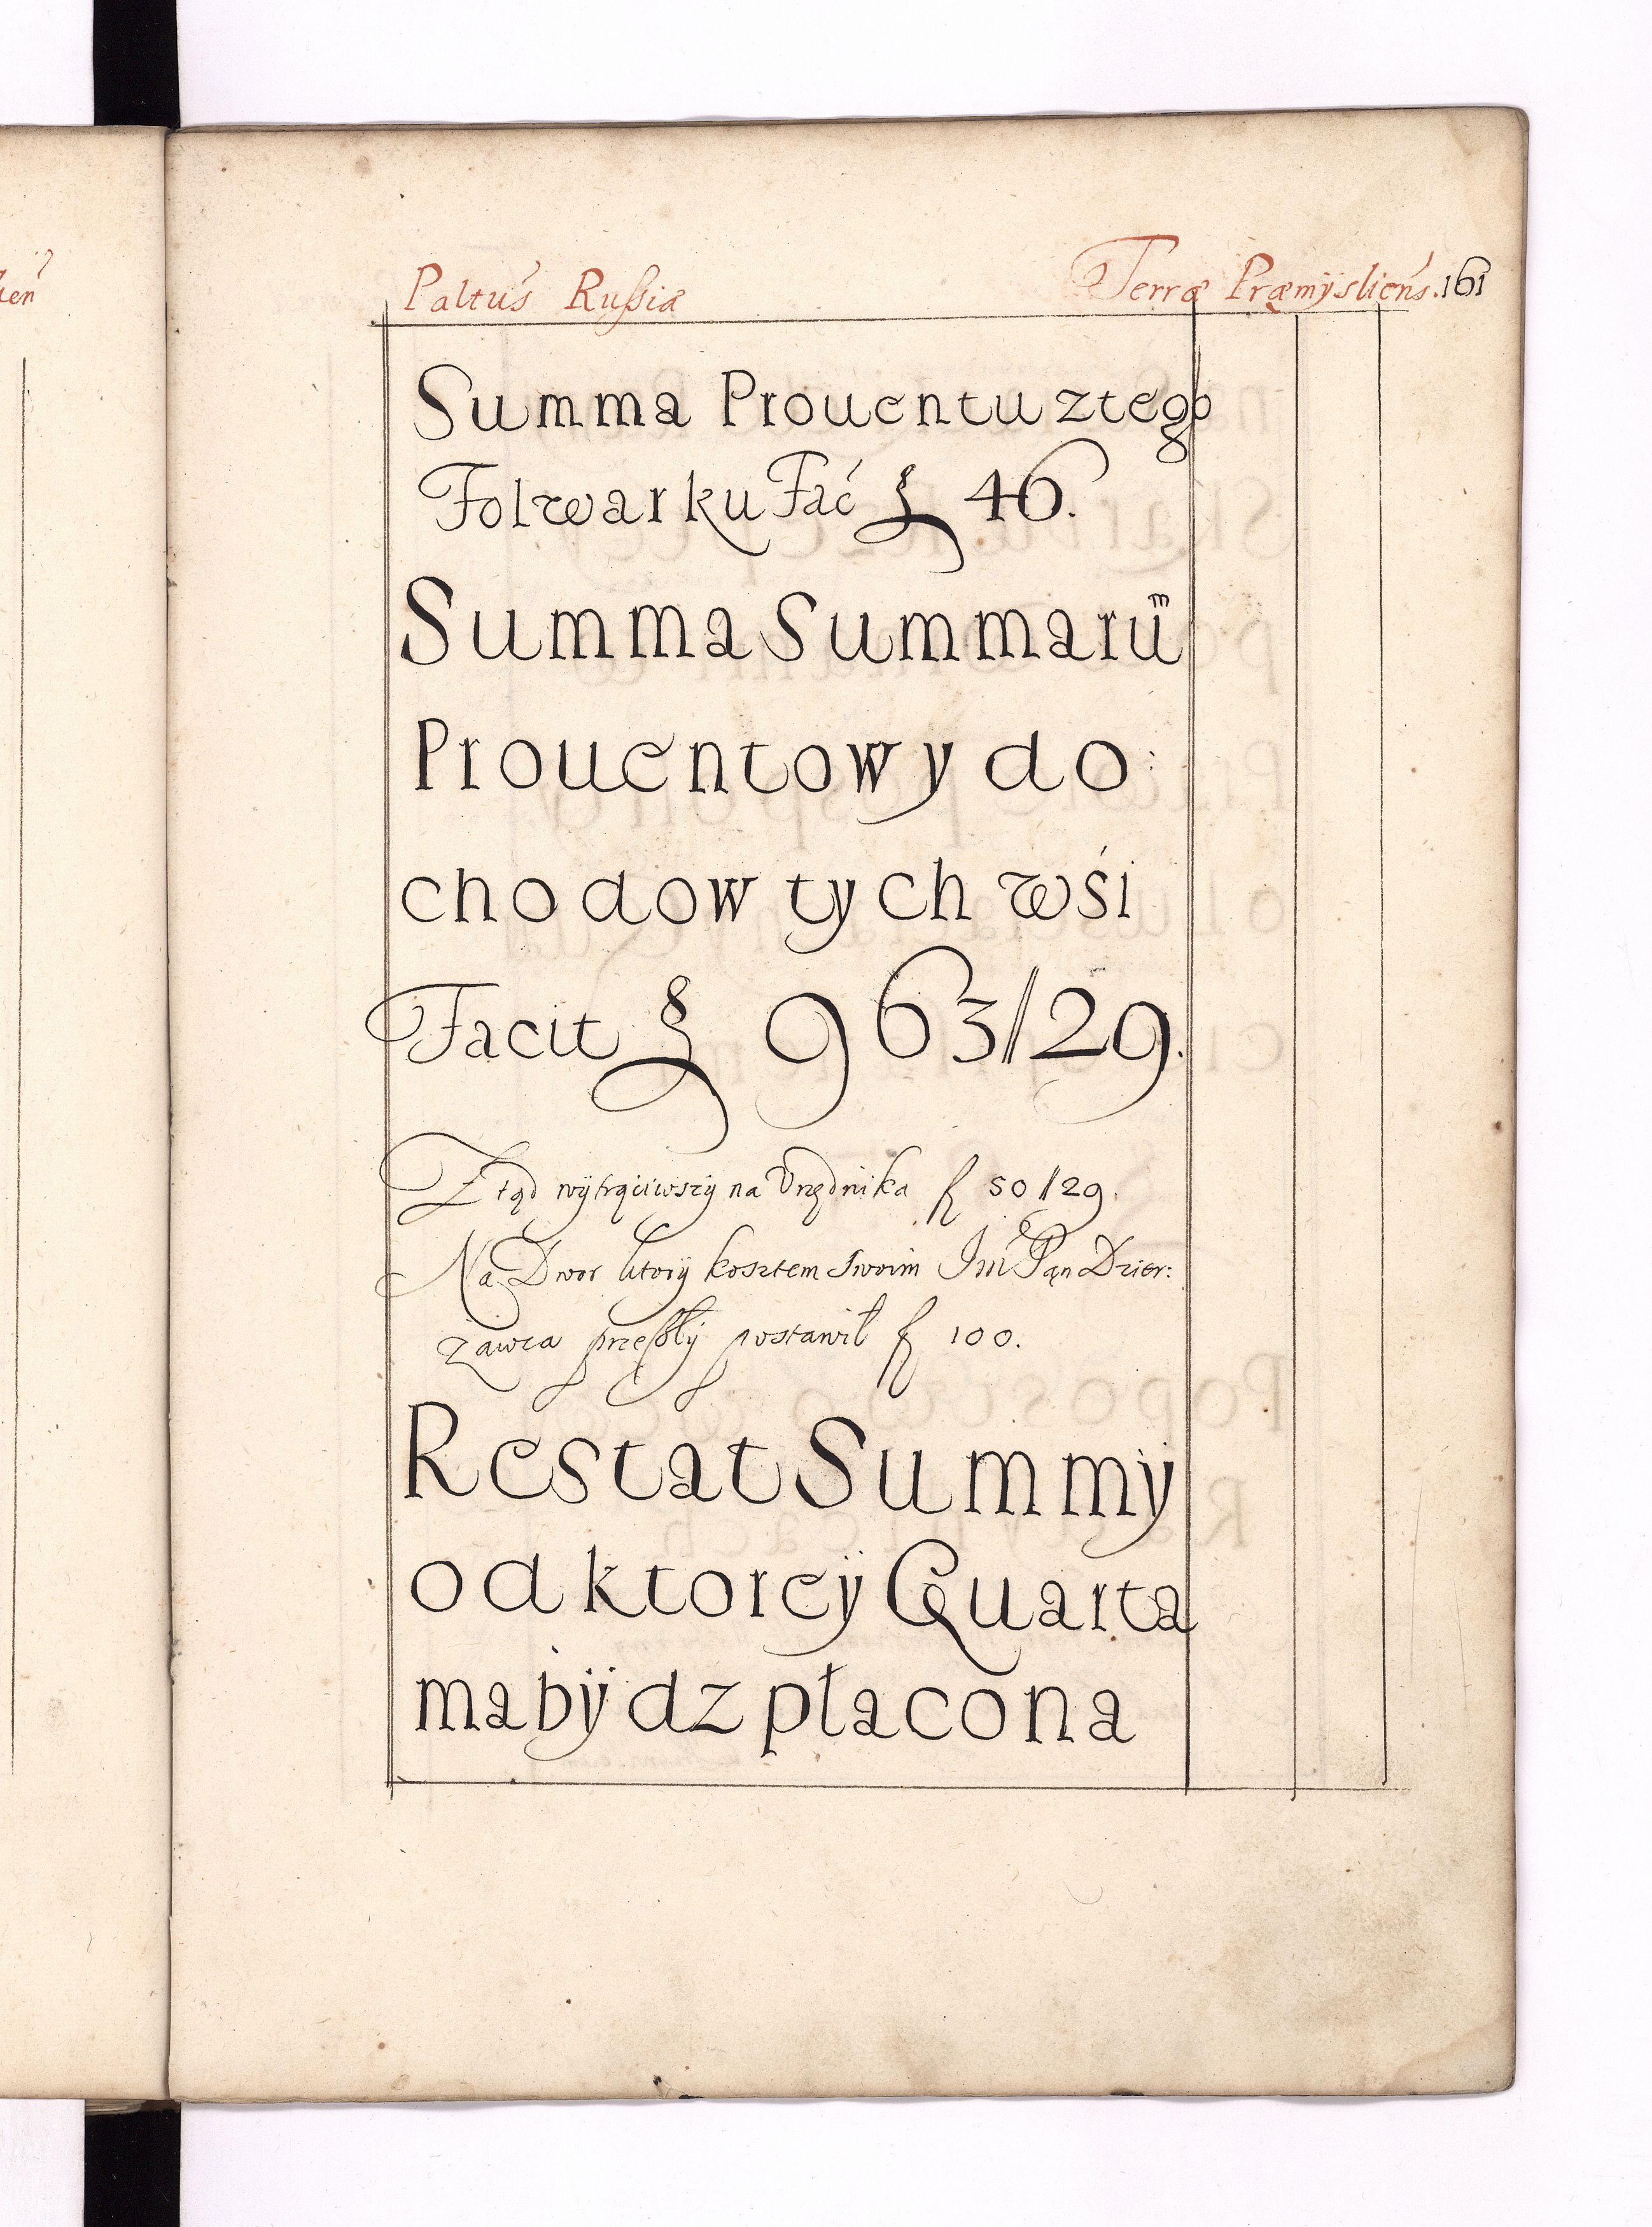 Paltuś Rußiæ Terræ Præmÿslień́s. 161
Summa Prouentu ztego
Folwarku Fać f 46.
Summa Summarum̃
Prouentowy do:
chodow tych wśi
Facit f 963//29.
Ztąd wÿtrąciwszÿ na Vrzędnika f 50//29.
Na Dwor ktorÿ kosztem swoim Im̃ Pan Dzier:
zawca przeßłÿ postawił f 100.
Restat Summy
od ktoreÿ Quarta
ma bÿdz płacona
ien